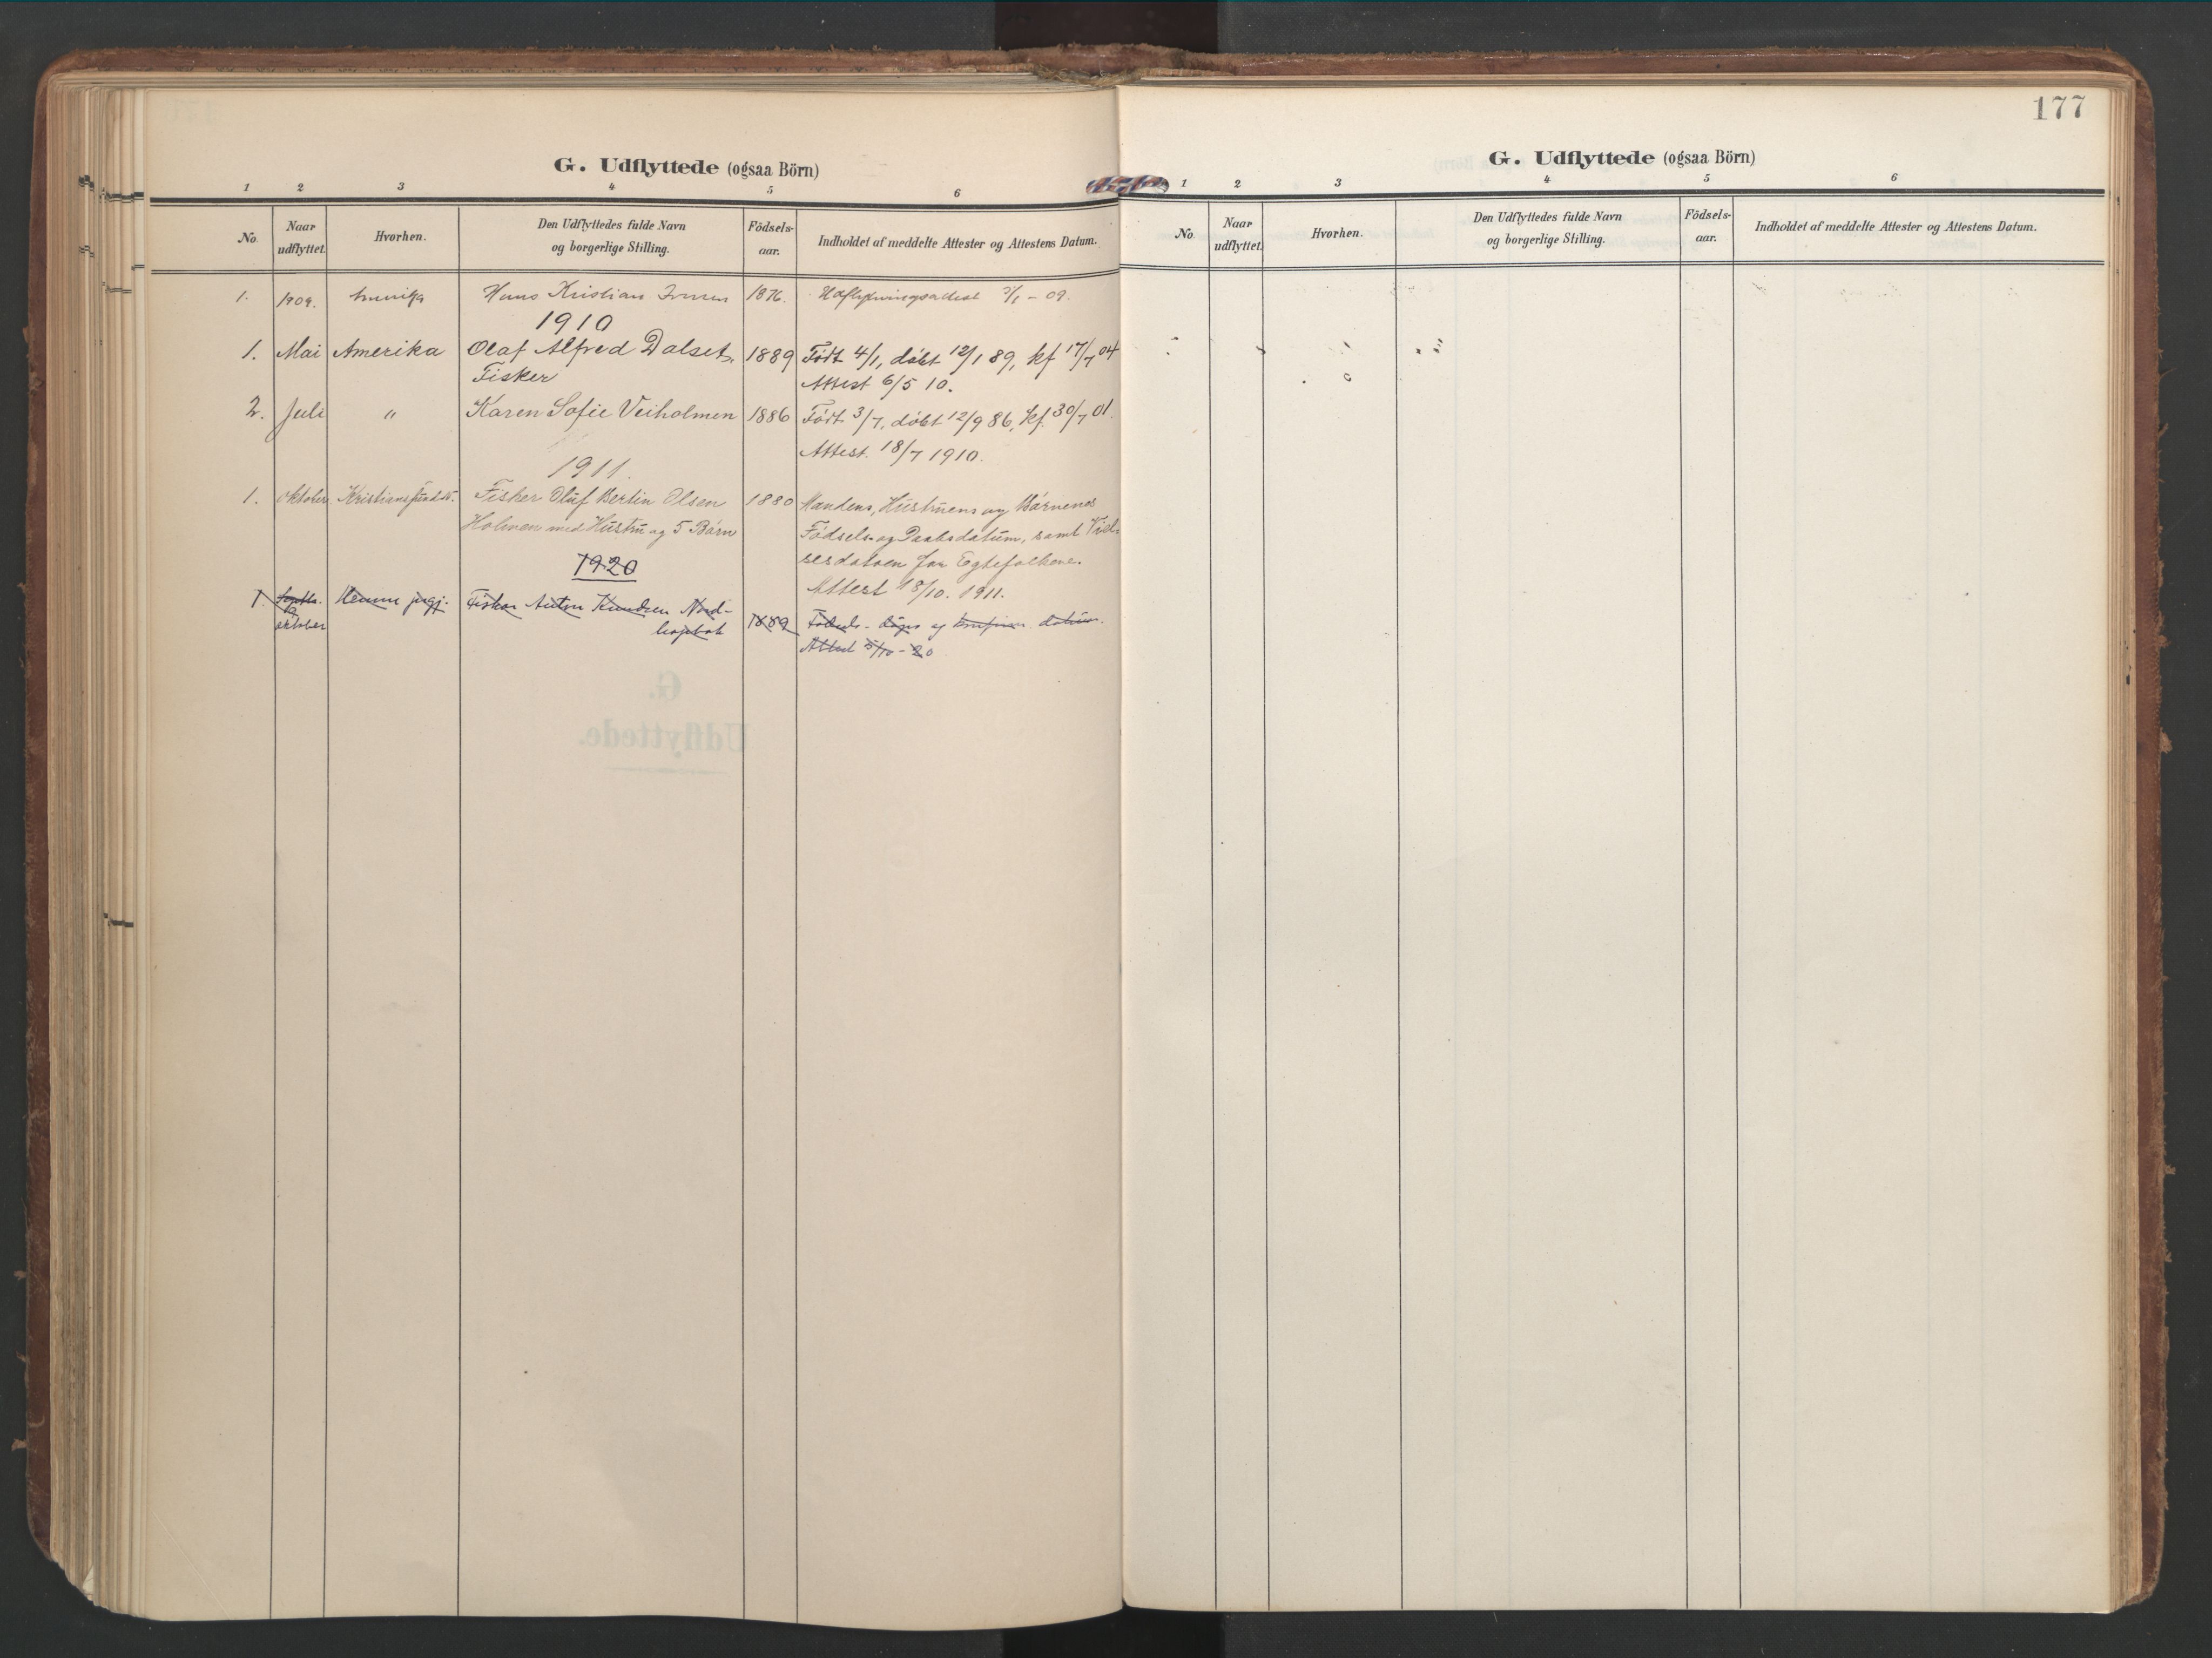 G. Udflyttede (ogsaa Börn)
1 2 3 4 5 6
No Naar udflyttet. Hvorhen. Den Udflyttedes fulde Navn og borgerlige Stilling. Födsels-aar. Indholdet af meddelte Attester og Attestens Datum.
1. 1909. Amerika Hans Kristian 1876. Udflytningsattest /1 - 09.
1910
1. Mai Amerika Olaf Alfred Dalset, 1889 Født 4/1, døbt 12/1 89, kf 17/7 04
Fisker Attest 6/5 10.
2. Juli " Karen Sofie Veiholmen 1886 Født 3/7, døbt 12/9 86, kf. 30/7 01.
Attest. 18/7 1910.
1911.
1. Oktober Kristianssund N. Fisker Oluf Bertin Olsen 1880 Mandens, Hustruens og Børnenes
Holmen med Hustru og 5 Børn Fødsels- og Daabsdatum, samt Viel-
sesdatoen for Egtefolkene.
Attest 18/10. 1911.
1920
1. Septbr. Hemne prgj. Fisker Anton Knudsen Nord- 1889 Fødsels- daaps og konfirm. datum.
oktober Attest 5/10 - 20
177
G. Udflyttede (ogsaa Börn)
1 2 3 4 5 6
No Naar udflyttet. Hvorhen. Den Udflyttedes fulde Navn og borgerlige Stilling. Födsels-aar. Indholdet af meddelte Attester og Attestens Datum.